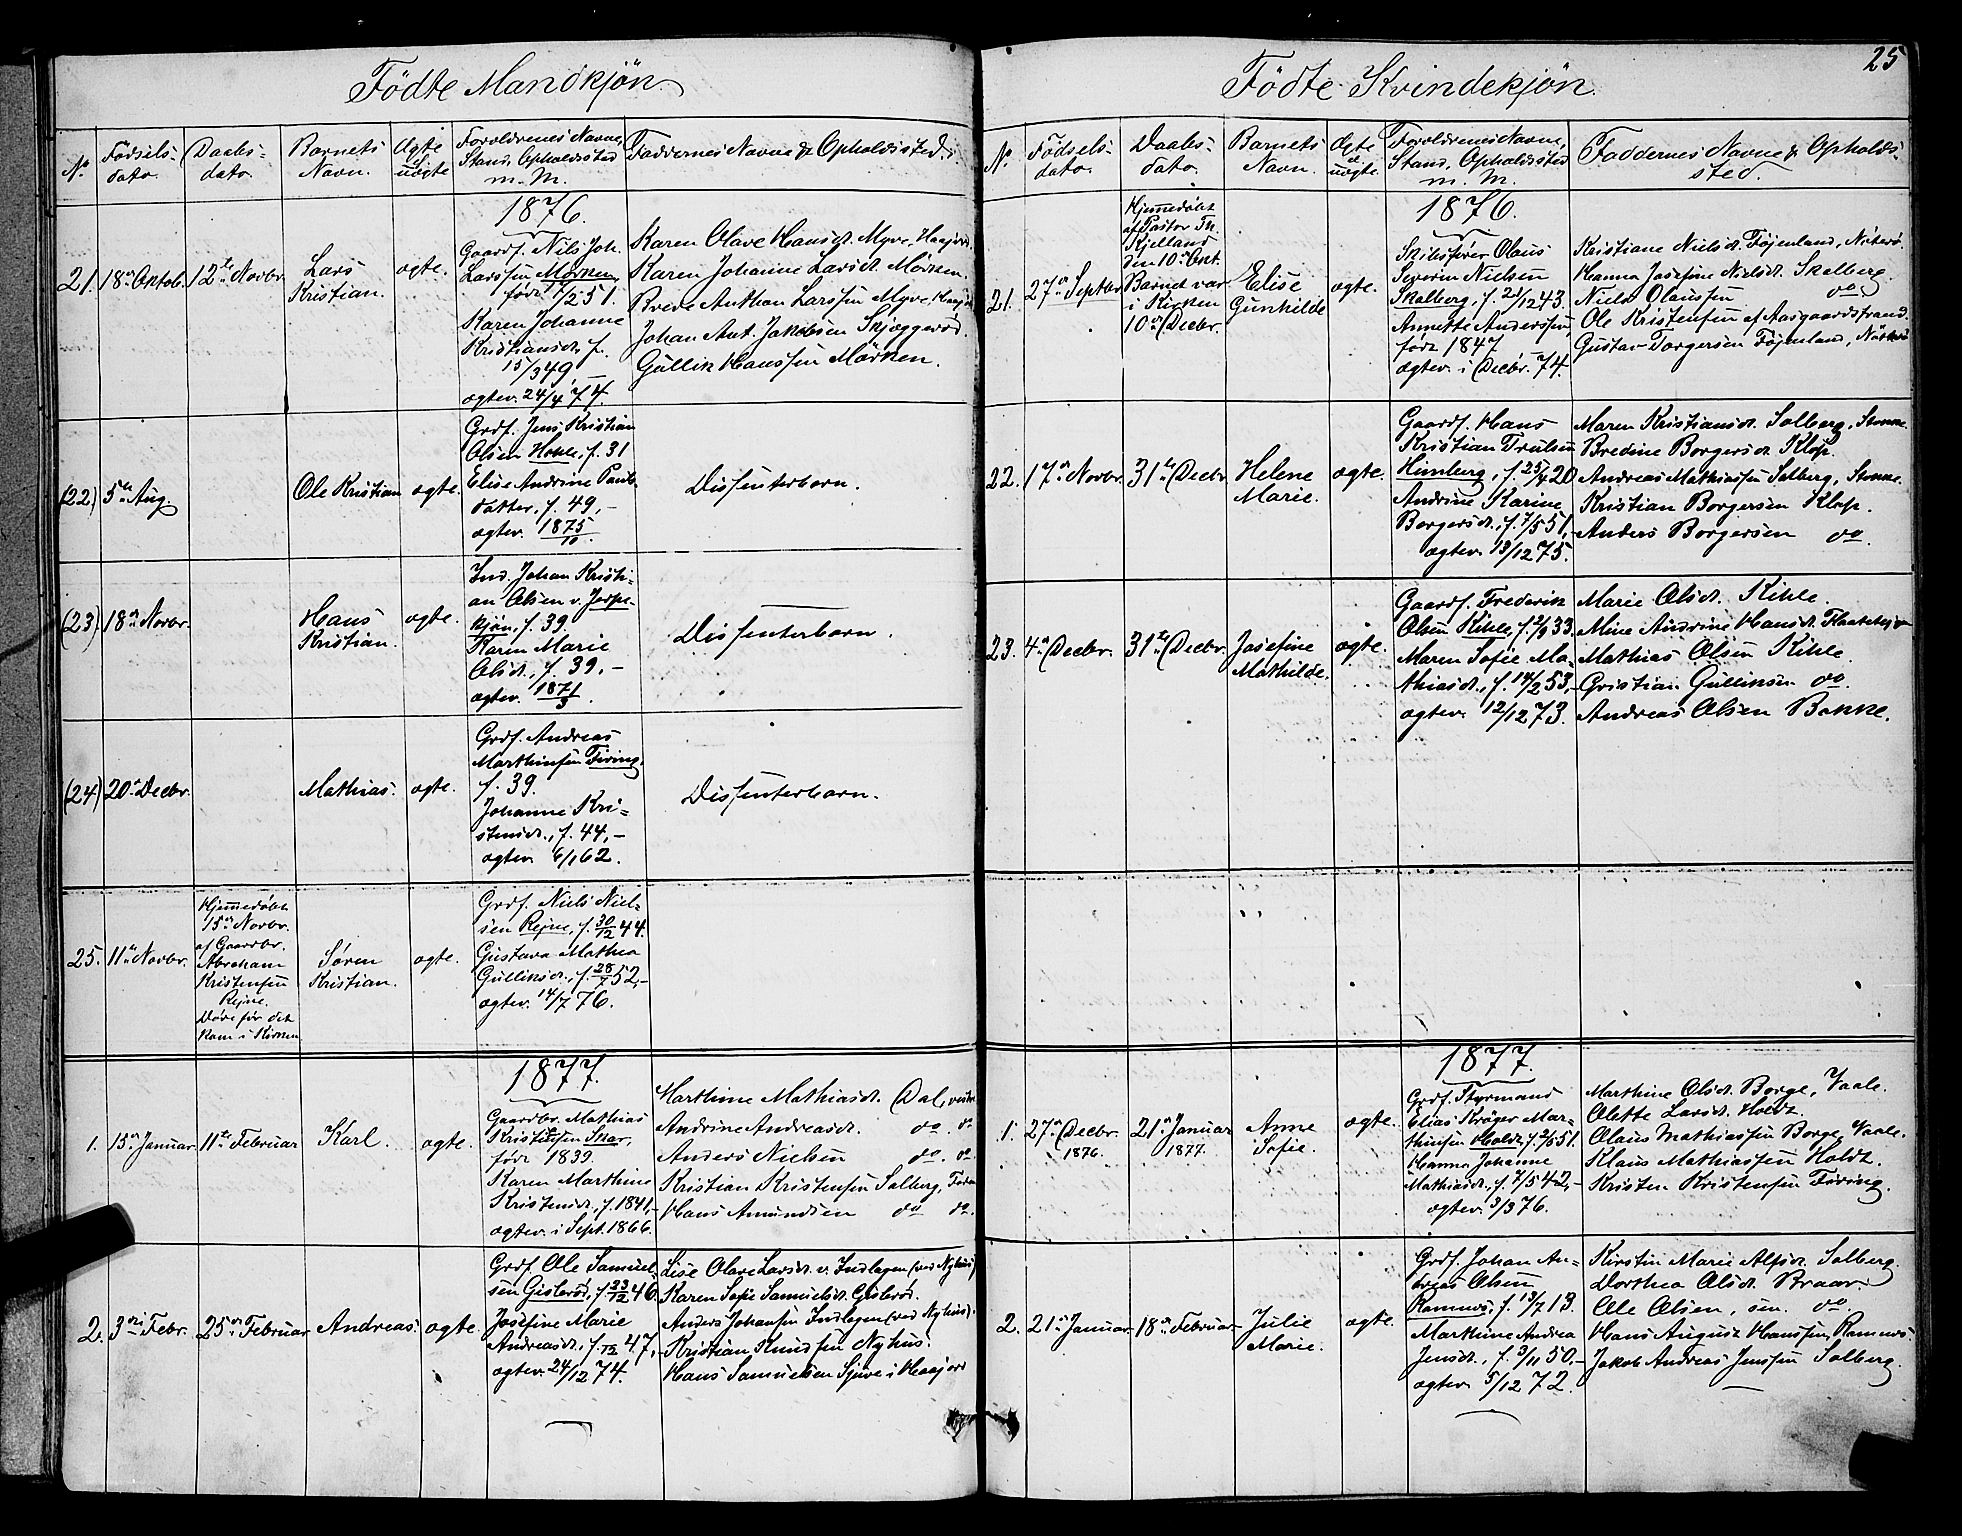 25
Fødte Mandkjøn.
No.
Fødsels-
dato.
Daabs-
dato.
Barnets
Navn.
Ægte
el.
uægte
Forældrenes Navne,
Stand, Opholdssted
m. M.
Faddernes Navne & Opholdssted.
1876.
21.
18de Oktob.
12te Novbr.
Lars
Kristian.
ægte.
Gaardf. Nils Joh.
Larssen Mørken,
født 1/2 51.
Karen Johanne
Kristiansd. f.
15/3 49 –
ægtev. 24/4 74.
Karen Olave Hansd. Myre, Haajord.
Karen Johanne Larsd. Mørken.
Brede Anthon Larssen Myre,
Johan Ant. Jakobsen Skjæggerød.
Gullik Hanssen Mørken.
(22)
5te Aug.
Ole Kristian
ægte.
Grdf. Jens Kristian
Olsen Hokle, f. 31
Elise Andrine Pauls-
datter, f. 49, –
ægtev. 1875/10.
Dissenterbarn.
(23)
18de Novbr.
Hans
Kristian.
ægte.
Ind. Johan Kristi-
an Olsen v. Jerpe-
kjøn, f. 39.
Karen Marie
Olsd., f. 39, –
ægtev. 1871/3.
Dissenterbarn.
(24)
20de Decbr.
Mathias.
ægte.
Grdf. Andreas
Marthinsen Firing,
f. 39.
Johanne Kri-
stensd., f. 44, –
ægtev. 6/1 62.
Dissenterbarn.
25.
11te Novbr.
Hjemmedøbt
15de Novbr.
af Gaardbr.
Abraham
Kristensen
Rejne.
Døde før det
kom i Kirken
Søren
Kristian.
ægte.
Grdf. Niels Niel-
sen Rejne, f. 30/12 44.
Gustava Mathea
Gulliksd., f. 28/7 52, –
ægtev. 14/7 76.
1877.
1.
15de Januar
11te Februar
Karl.
ægte.
Gaardbr. Mathias
Kristensen Snar,
født 1839.
Karen Marthine
Kristensd., f. 1841, –
ægtev. i Sept. 1866.
Marthine Mathiasd. Dal, vestre
Andrine Andreasd. do. do
Anders Nielsen do. do.
Kristian Kristensen Solberg,
Hans Amundsen do do.
2.
3die Febr.
25de Februar
Andreas.
ægte.
Grdf. Ole Samuel-
sen Gisterød, f. 23/12 46.
Josefine Marie
Andreasd., f. 47, –
ægtev. 24/12 74.
Lise Olave Larsd. v. Indlagen (ved Nyhus)
Karen Sofie Samuelsd. Gisterød.
Anders Johansen Indlagen (ved Nyhus).
Kristian Knudsen Nyhus.
Hans Samuelsen Sjuve i Haajord
Fødte Kvindekjøn.
No.
Fødsels-
dato.
Daabs-
dato.
Barnets
Navn.
Ægte
el.
uægte.
Forældrenes Navne,
Stand, Opholdssted
m. M.
Faddernes Navne & Opholds-
sted.
1876.
21.
27de Septbr
Hjemmedøbt
af Pastor Th.
Kjelland
den 10de Okt.
Barnet var
i Kirken
10de Decbr.
Elise
Gunhilde
ægte.
Skibsfører Olaus
Severin Nielsen
Skalberg, f. 21/12 43.
Annette Anderssen,
født 1847
ægtev. i Decbr. 74.
Kristiane Nielsd. Føjenland, Nøterø.
Hanna Josefine Nielsd. Skalberg.
Niels Olaussen do.
Ole Kristensen af Aasgaardstrand.
Gustav Torgersen Føjenland, Nøterø
22.
17de Novbr.
31te Decbr.
Helene
Marie.
ægte.
Gaardf. Hans
Kristian Trulsen
Himberg, f. 25/4 20
Andrine Karine
Borgersd., f. 7/5 51, –
ægtev. 13/12 75.
Maren Kristiansd. Solberg,
Bredine Borgersd. Klop.
Andreas Mathiassen Solberg,
Kristian Borgersen Klop.
Anders Borgersen do.
23.
4de Decbr.
31te Decbr.
Josefine
Mathilde.
ægte.
Gaardf. Frederik
Olsen Kihle, f. 2/9 33.
Maren Sofie Ma-
thiasd., f. 14/2 53, –
ægtev. 12/12 73.
Marie Olsd. Kihle.
Mine Andrine Hansd.
Mathias Olsen Kihle.
Kristian Gulliksen do.
Andreas Olsen Bakke.
1877.
1.
27de Decbr.
1876.
21de Januar
1877.
Anne
Sofie.
ægte.
Grdf. Styrmand
Elias Krøger Mar-
thinsen Holdt, f. 2/6 51.
Hanna Johanne
Mathiasd., f. 7/5 42, –
ægtev. 3/3 76.
Marthine Olsd. Borge, Vaale.
Olette Larsd. Holdt.
Olaus Mathiassen Borge, Vaale.
Klaus Mathiassen Holdt.
Kristen Kristensen Firing.
2.
21de Januar
18de Februar
Julie
Marie.
ægte.
Grdf. Johan An-
dreas Olsen
Ramnes, f. 13/7 13.
Marthine Andrea
Jensd., f. 3/11 50, –
ægtev. 5/12 72.
Kirstin Marie Alfsd. Solberg.
Dorthea Olsd. Braar.
Ole Olsen, sen. do.
Hans August Hanssen, Ramnes
Jakob Andreas Jenssen Solberg.